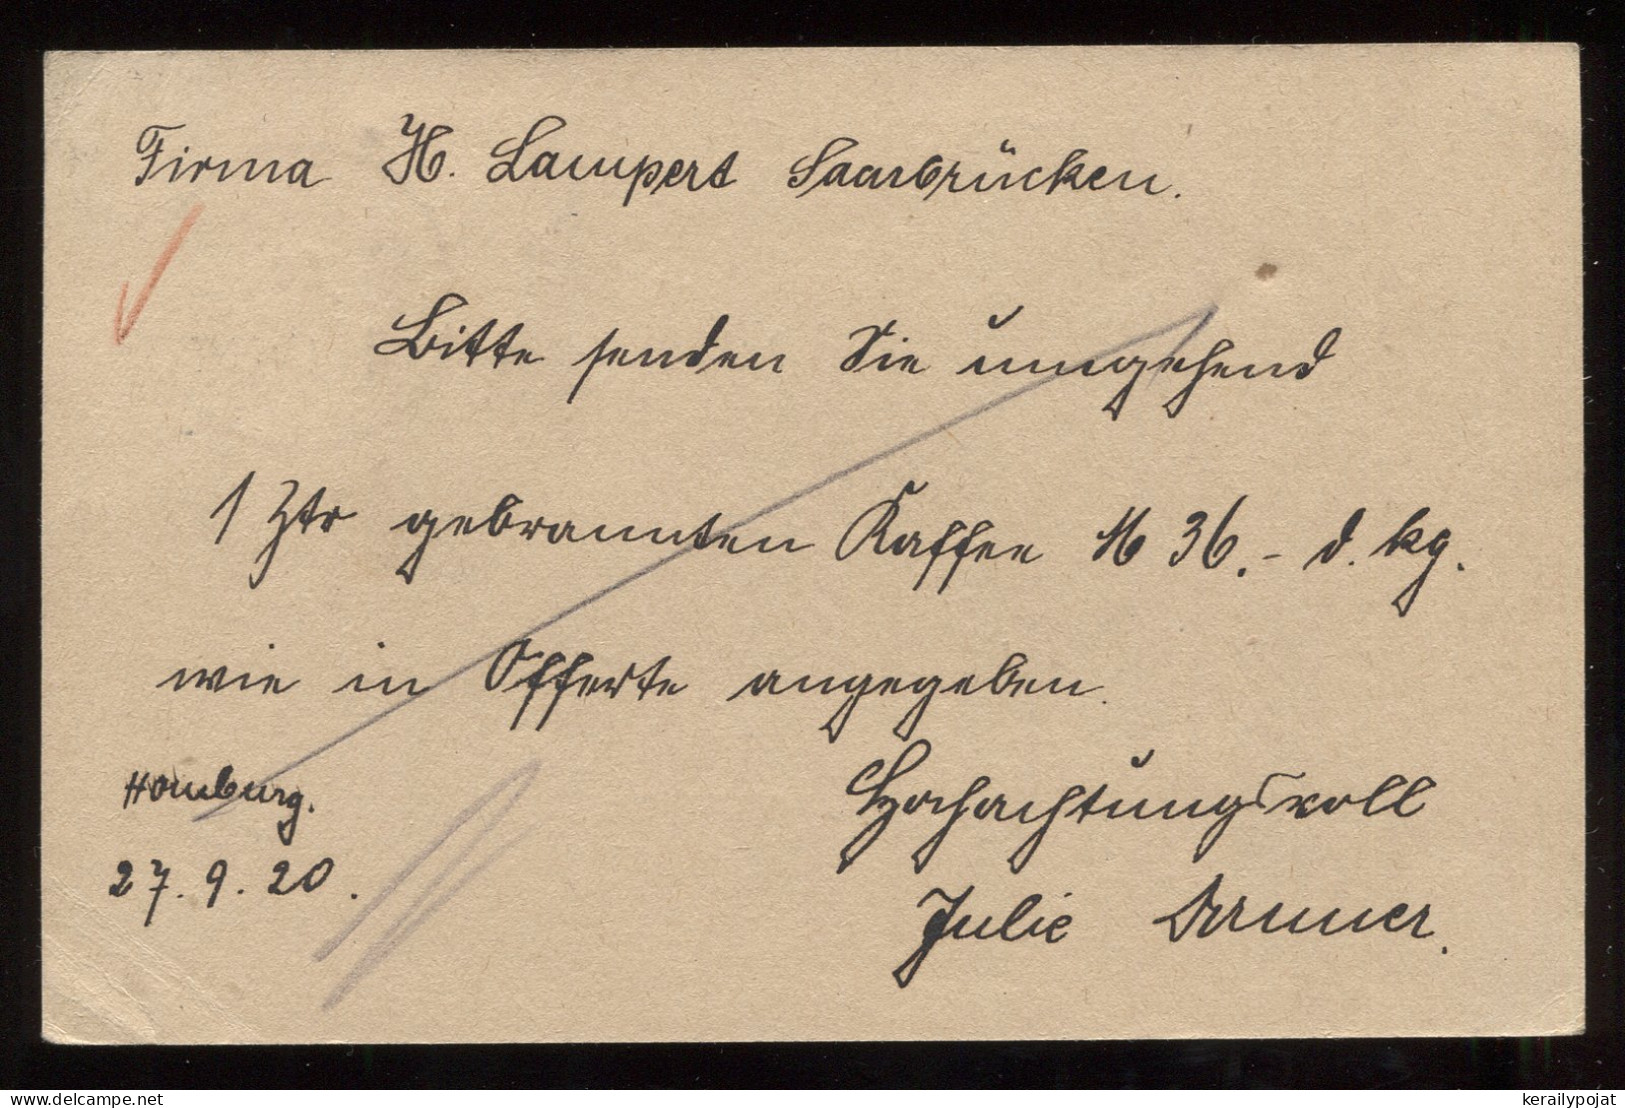 Firma H. Lampert Saarbrücken.
Bitte senden Sie umgehend
1 Ztr gebrannten Kaffee M 36.- d. kg.
wie in Offerte angegeben.
Homburg.
27.9.20.
Hochachtungsvoll
Julie
delcampe.net
kerailypojat